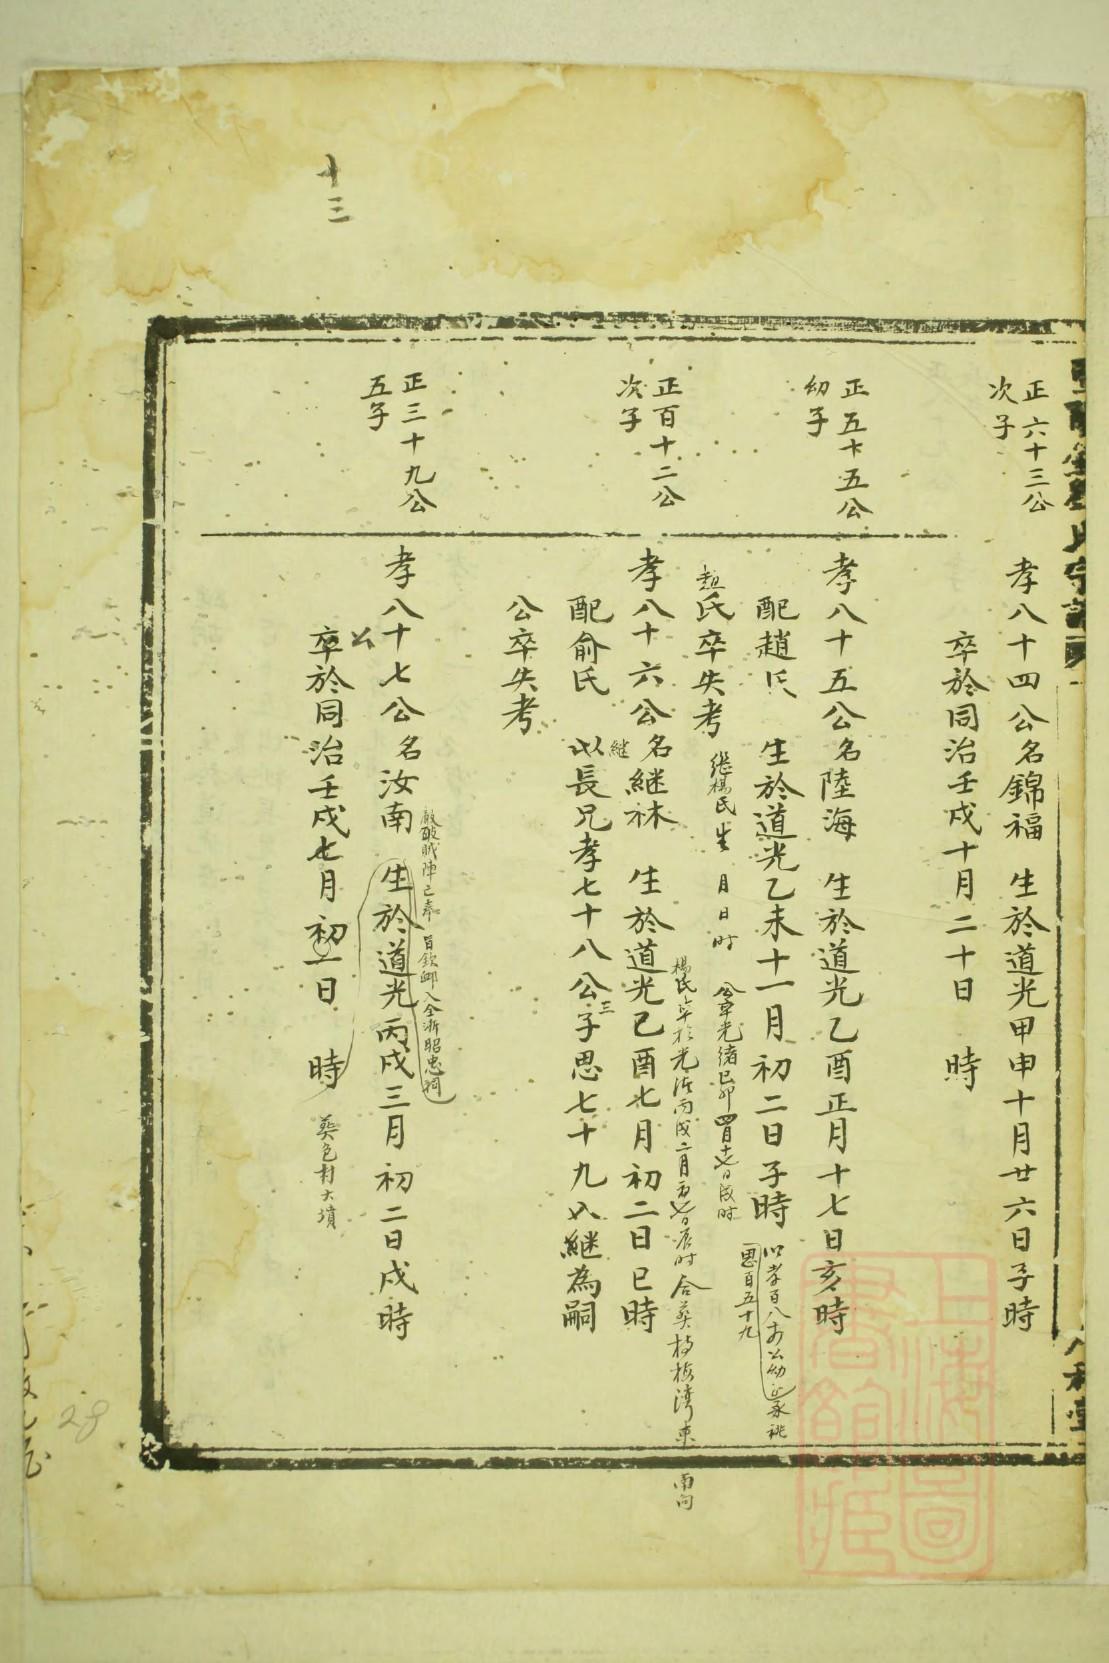 十三
正六十三公
次子
孝八十四公名錦福 生於道光甲申十月廿六日子時
卒於同治壬戌十月二十日 時
正五十五公
幼子
孝八十五公名陸海 生於道光乙酉正月十七日亥時
配趙氏 生於道光乙未十一月初二日子時
以孝百八 公幼 承祧
思百五十九
趙氏卒失考
繼楊氏生 月日時 公卒光緒己卯四月 日 時
楊氏卒於光 丙戌二月 日辰時 合葬 梅湾東 南向
正百十二公
次子
孝八十六公名継林 生於道光己酉七月初二日巳時
継
配俞氏 以長兄孝七十八公三子思七十九入継為嗣
公卒失考
正三十九公
五子
孝八十七公名汝南 生於道光丙戌三月初二日戌時
陣亡奉 旨欽 入全浙昭忠祠
公
卒於同治壬戌七月初一日 時 葬色村大墳
28